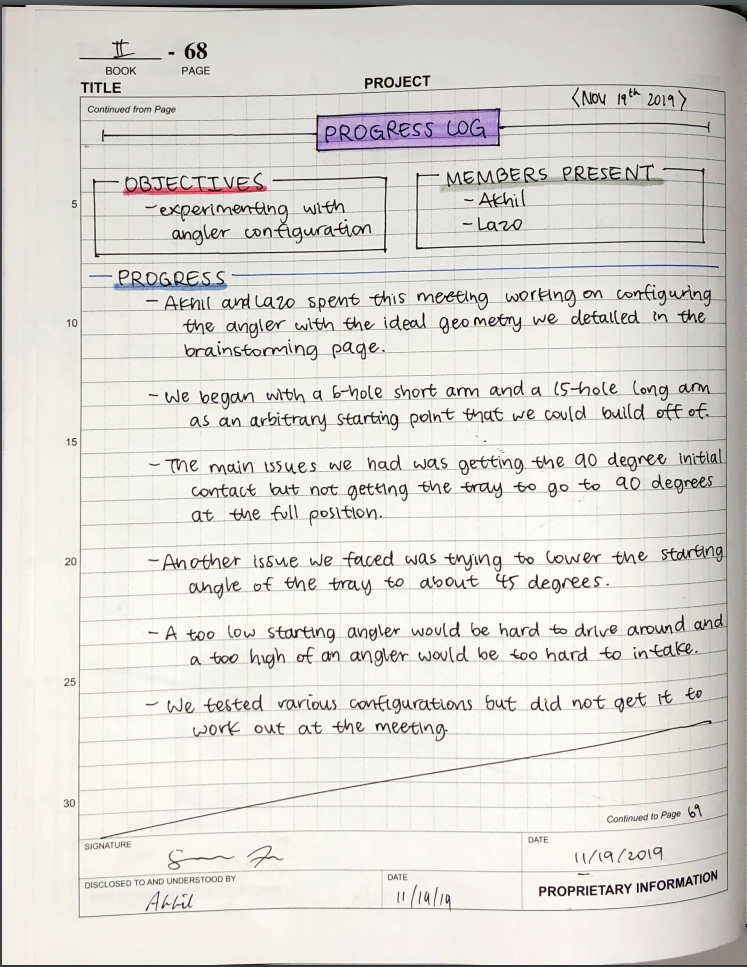 II - 68
BOOK PAGE
TITLE PROJECT
Continued from Page
〈Nov 19th 2019〉
PROGRESS LOG
OBJECTIVES
- experimenting with
angler configuration
MEMBERS PRESENT
- Akhil
- Lazo
5
PROGRESS
- Akhil and Lazo spent this meeting working on configuring
10
the angler with the ideal geometry we detailed in the
brainstorming page.
- We began with a 6-hole short arm and a 15-hole long arm
as an arbitrary starting point that we could build off of.
15
- The main issues we had was getting the 90 degree initial
contact but not getting the tray to go to 90 degrees
at the full position.
20
- Another issue we faced was trying to lower the starting
angle of the tray to about 45 degrees.
- A too low starting angler would be hard to drive around and
a too high of an angler would be too hard to intake.
25
- We tested various configurations but did not get it to
work out at the meeting.
30
Continued to Page 69
SIGNATURE
DATE
11/19/2019
DISCLOSED TO AND UNDERSTOOD BY
Akhil
DATE
11/19/19
PROPRIETARY INFORMATION